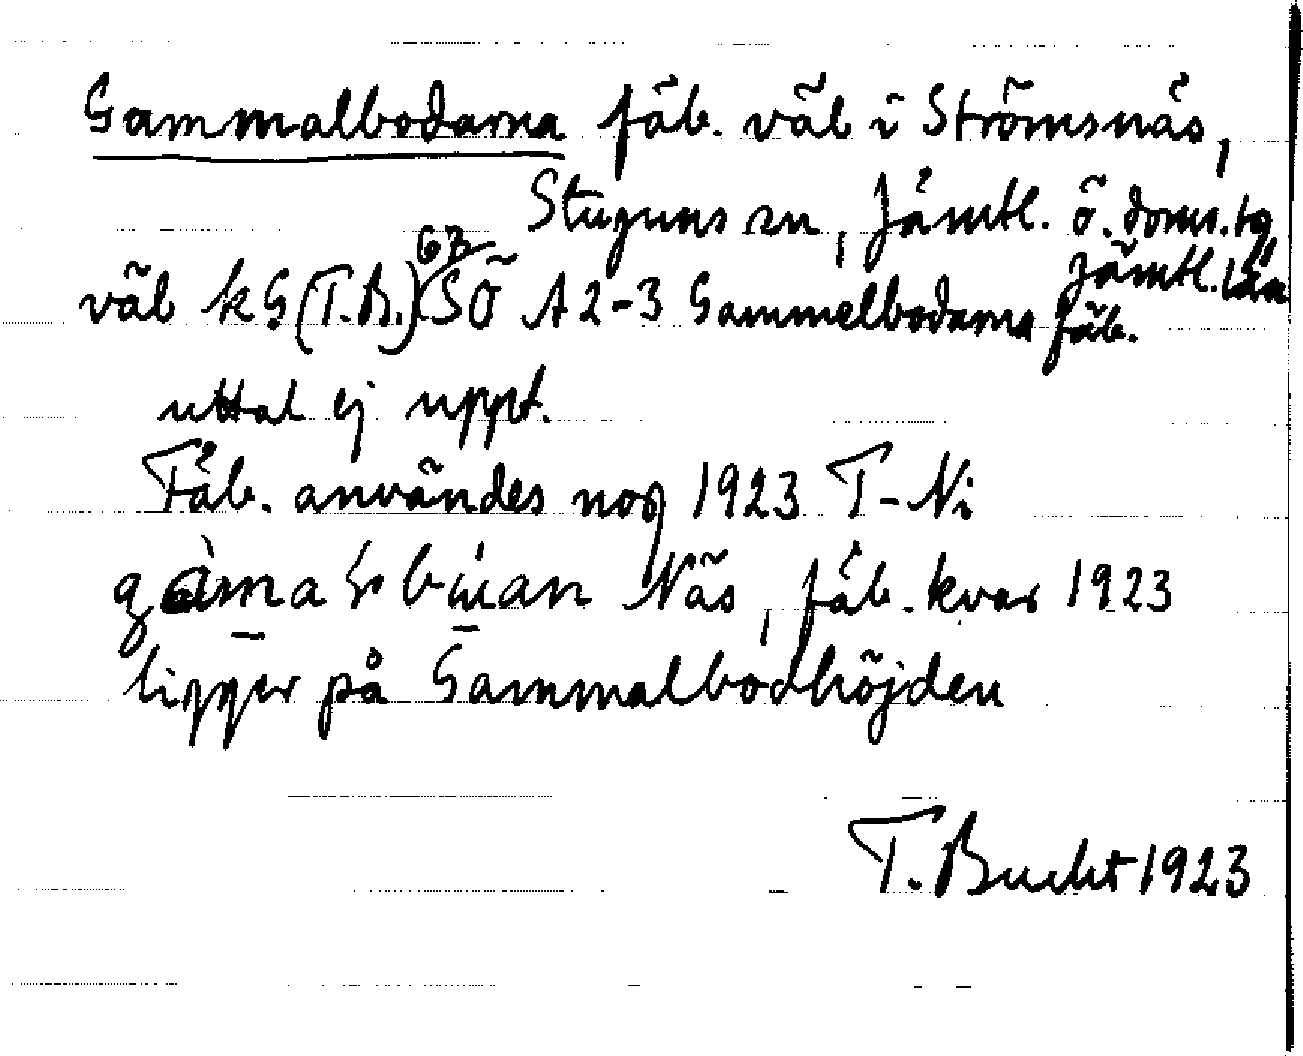 Gammalbodarna fäb. väb i Strömsnäs,
Stuguns sn, Jämtl. ö. doms. tg
Jämtl. län
väb k G (T.B.) 63 SÖ A 2-3 Gammelbodarna fäb.
uttal ej uppt.
Fäb. användes nog 1923 T-Ni
Näs, fäb. kvar 1923
ligger på Gammalbodhöjden
T. Bucht 1923